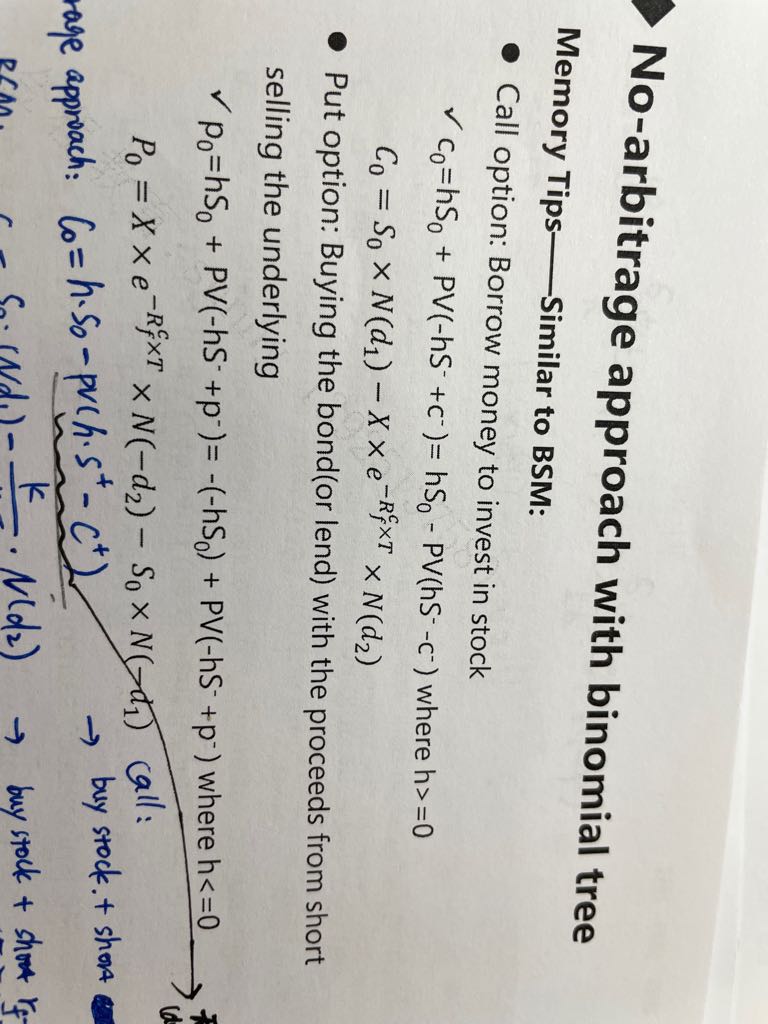 ◆ No-arbitrage approach with binomial tree
Memory Tips——Similar to BSM:
● Call option: Borrow money to invest in stock
✓ c₀=hS₀ + PV(-hS⁻ +c⁻)= hS₀ - PV(hS⁻ -c⁻) where h>=0
C₀ = S₀ × N(d₁) − X × e^{−R_f^c×T} × N(d₂)
● Put option: Buying the bond(or lend) with the proceeds from short
selling the underlying
✓ p₀=hS₀ + PV(-hS⁻ +p⁻)= -(-hS₀) + PV(-hS⁻ +p⁻) where h<=0
P₀ = X × e^{−R_f^c×T} × N(−d₂) − S₀ × N(−d₁)
call:
approach: C₀ = h·S₀ − pv(h·S⁺ − C⁺) → buy stock. + short
BSM: C = S₀·(Nd₁) − k · N(d₂) → buy stock + short rf